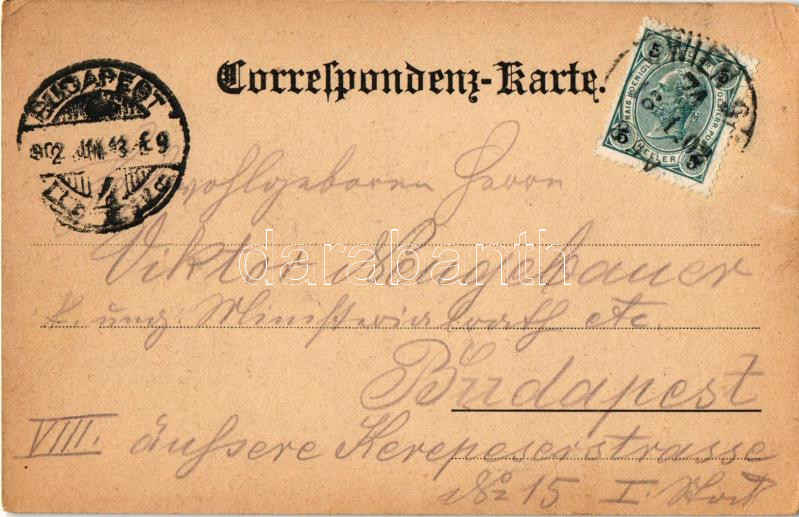 Correspondenz-Karte.
BUDAPEST
902 JAN. 13 É. 9
WIEN
5 5
KAIS. KOENIGL. OESTERR. POST
5 HELLER 5
Hochwohlgeboren Herrn
Viktor Neugebauer
k. ung. Ministerialrath etc.
Budapest
VIII. äussere Kerepeserstrasse
No 15 I. Stock
darabanth